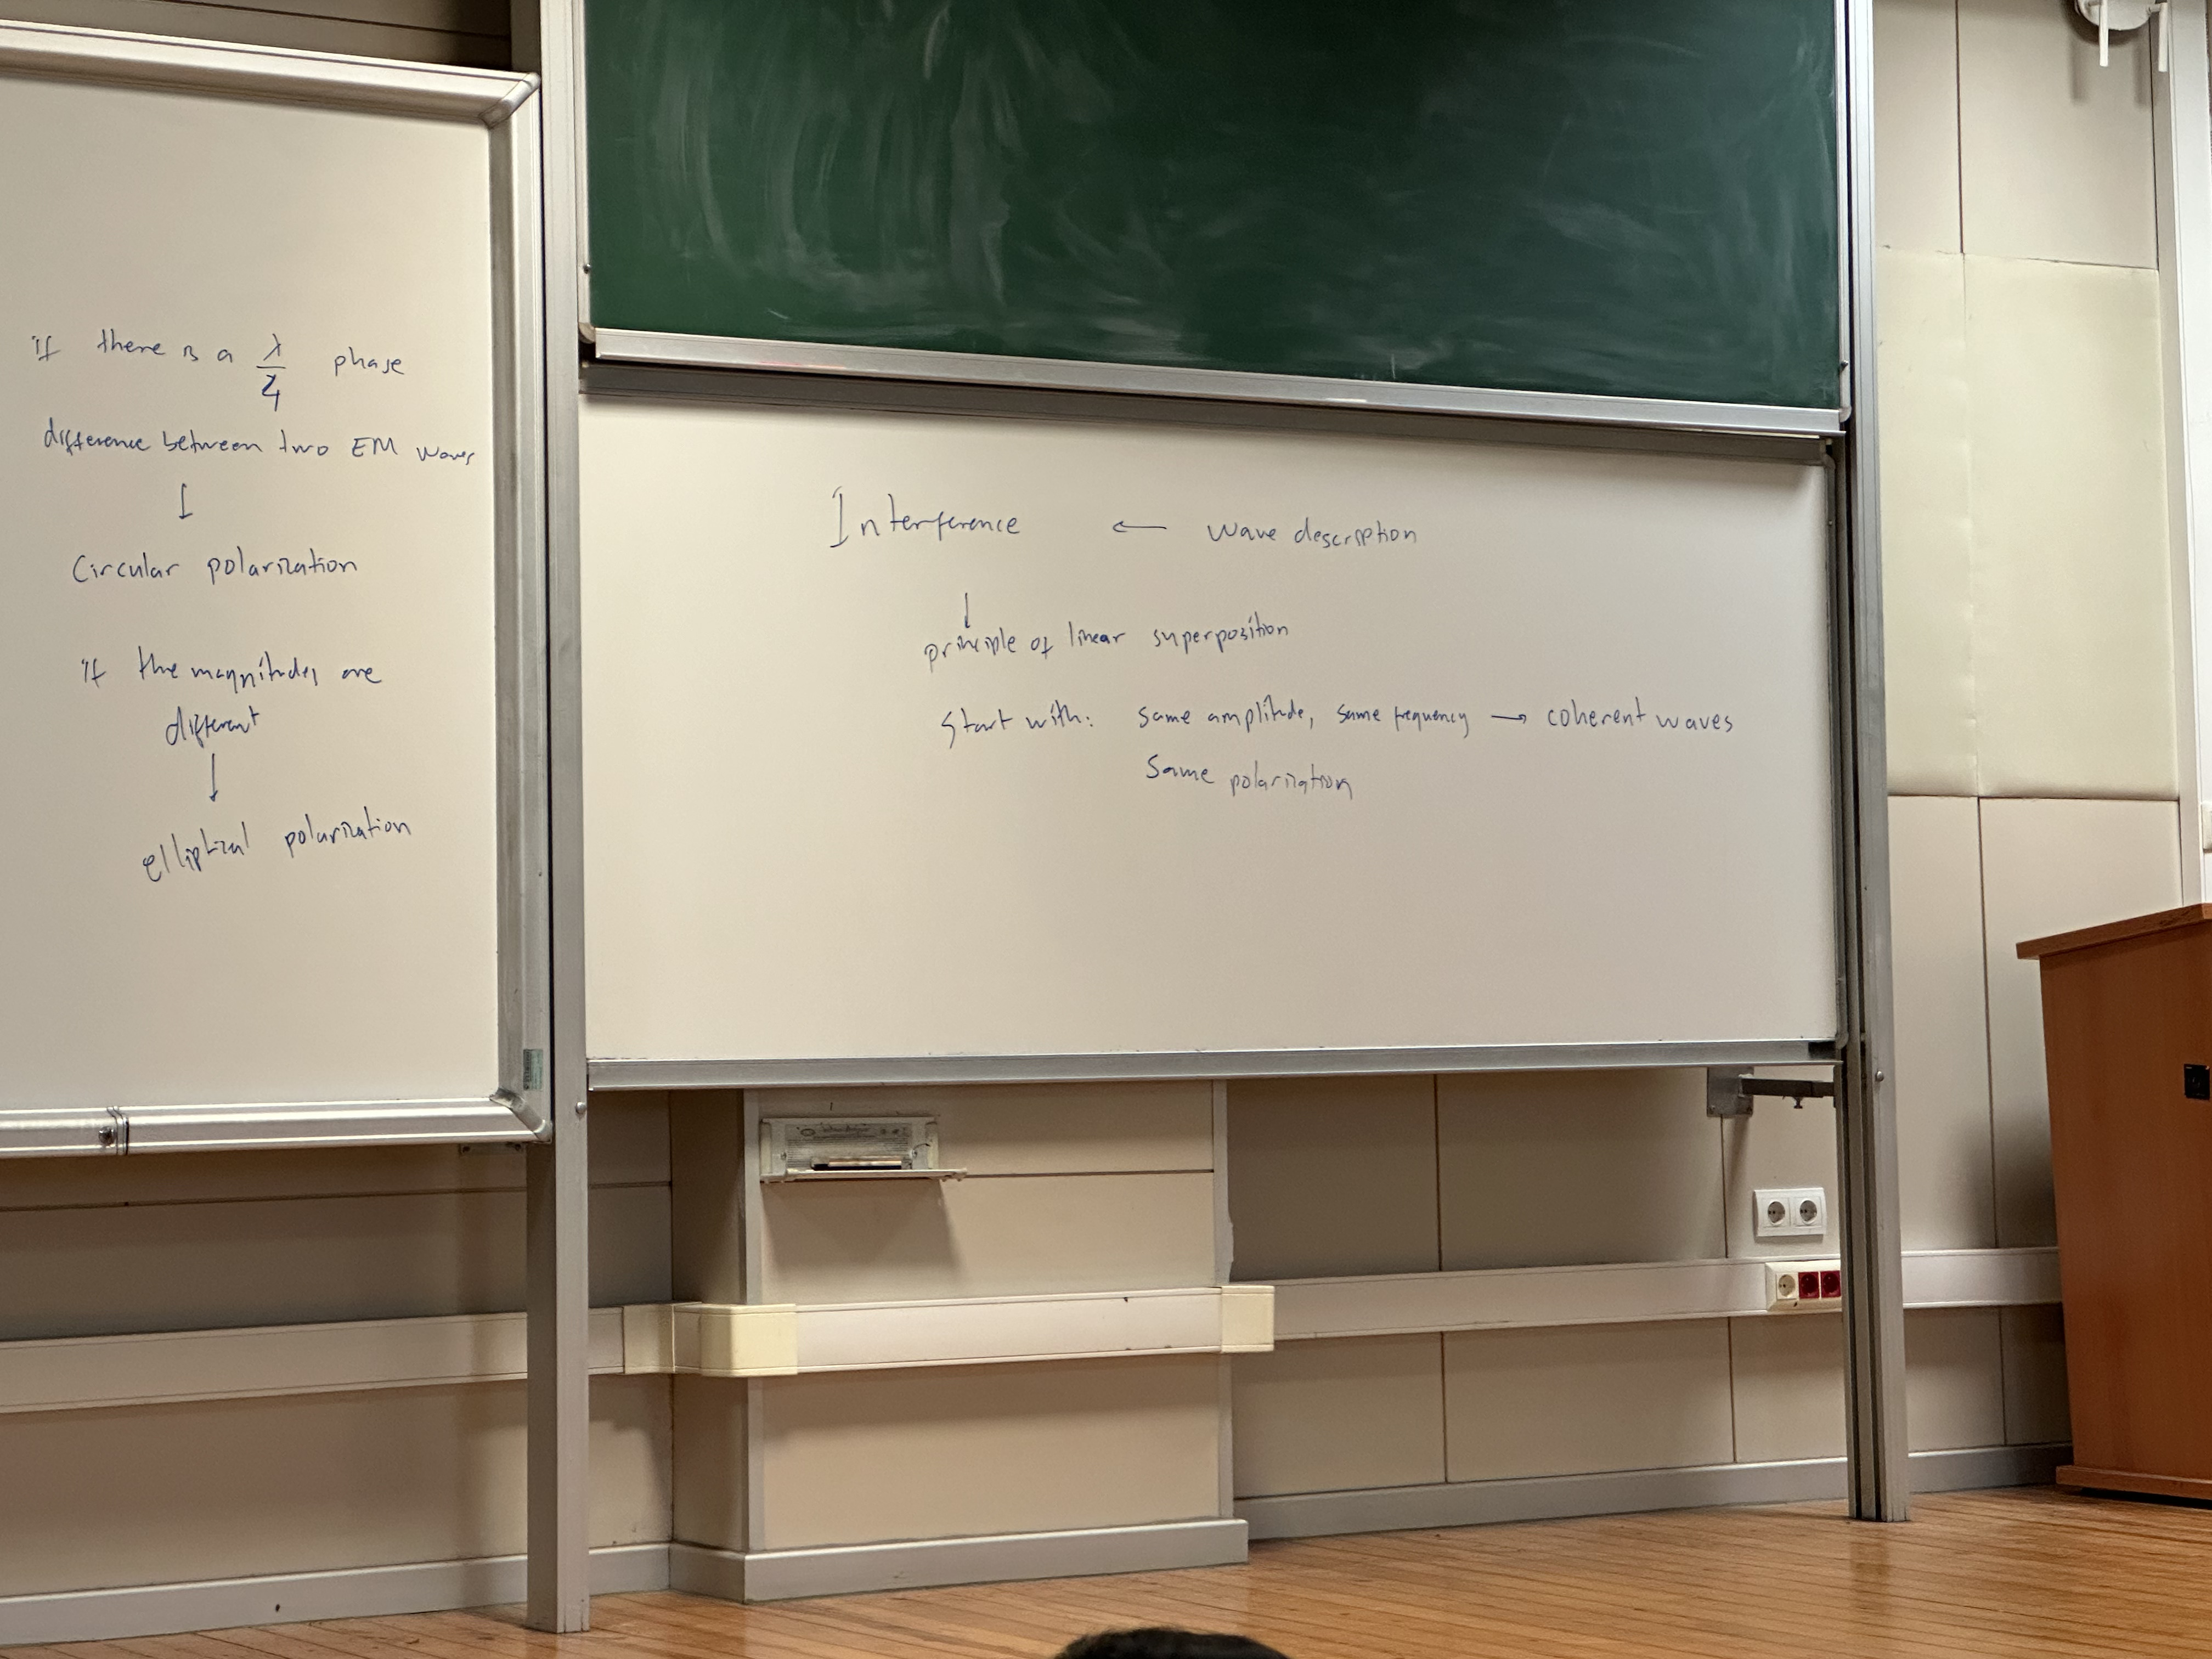 if there is a λ/4 phase
difference between two EM waves
↓
Circular polarization
if the magnitudes are
different
↓
elliptical polarization
Interference ← wave description
↓
principle of linear superposition
Start with: same amplitude, same frequency → coherent waves
Same polarization